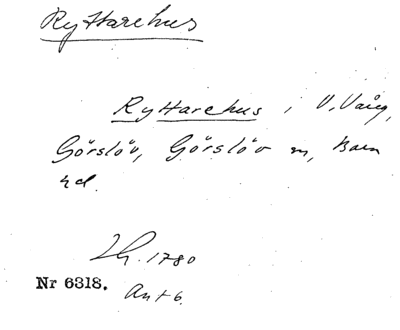 Ryttarehus
Ryttarehus, V. Vång,
Görslöv, Görslöv sn, Bara
hd.
Lh. 1780
Nr 6318. Ant 6.